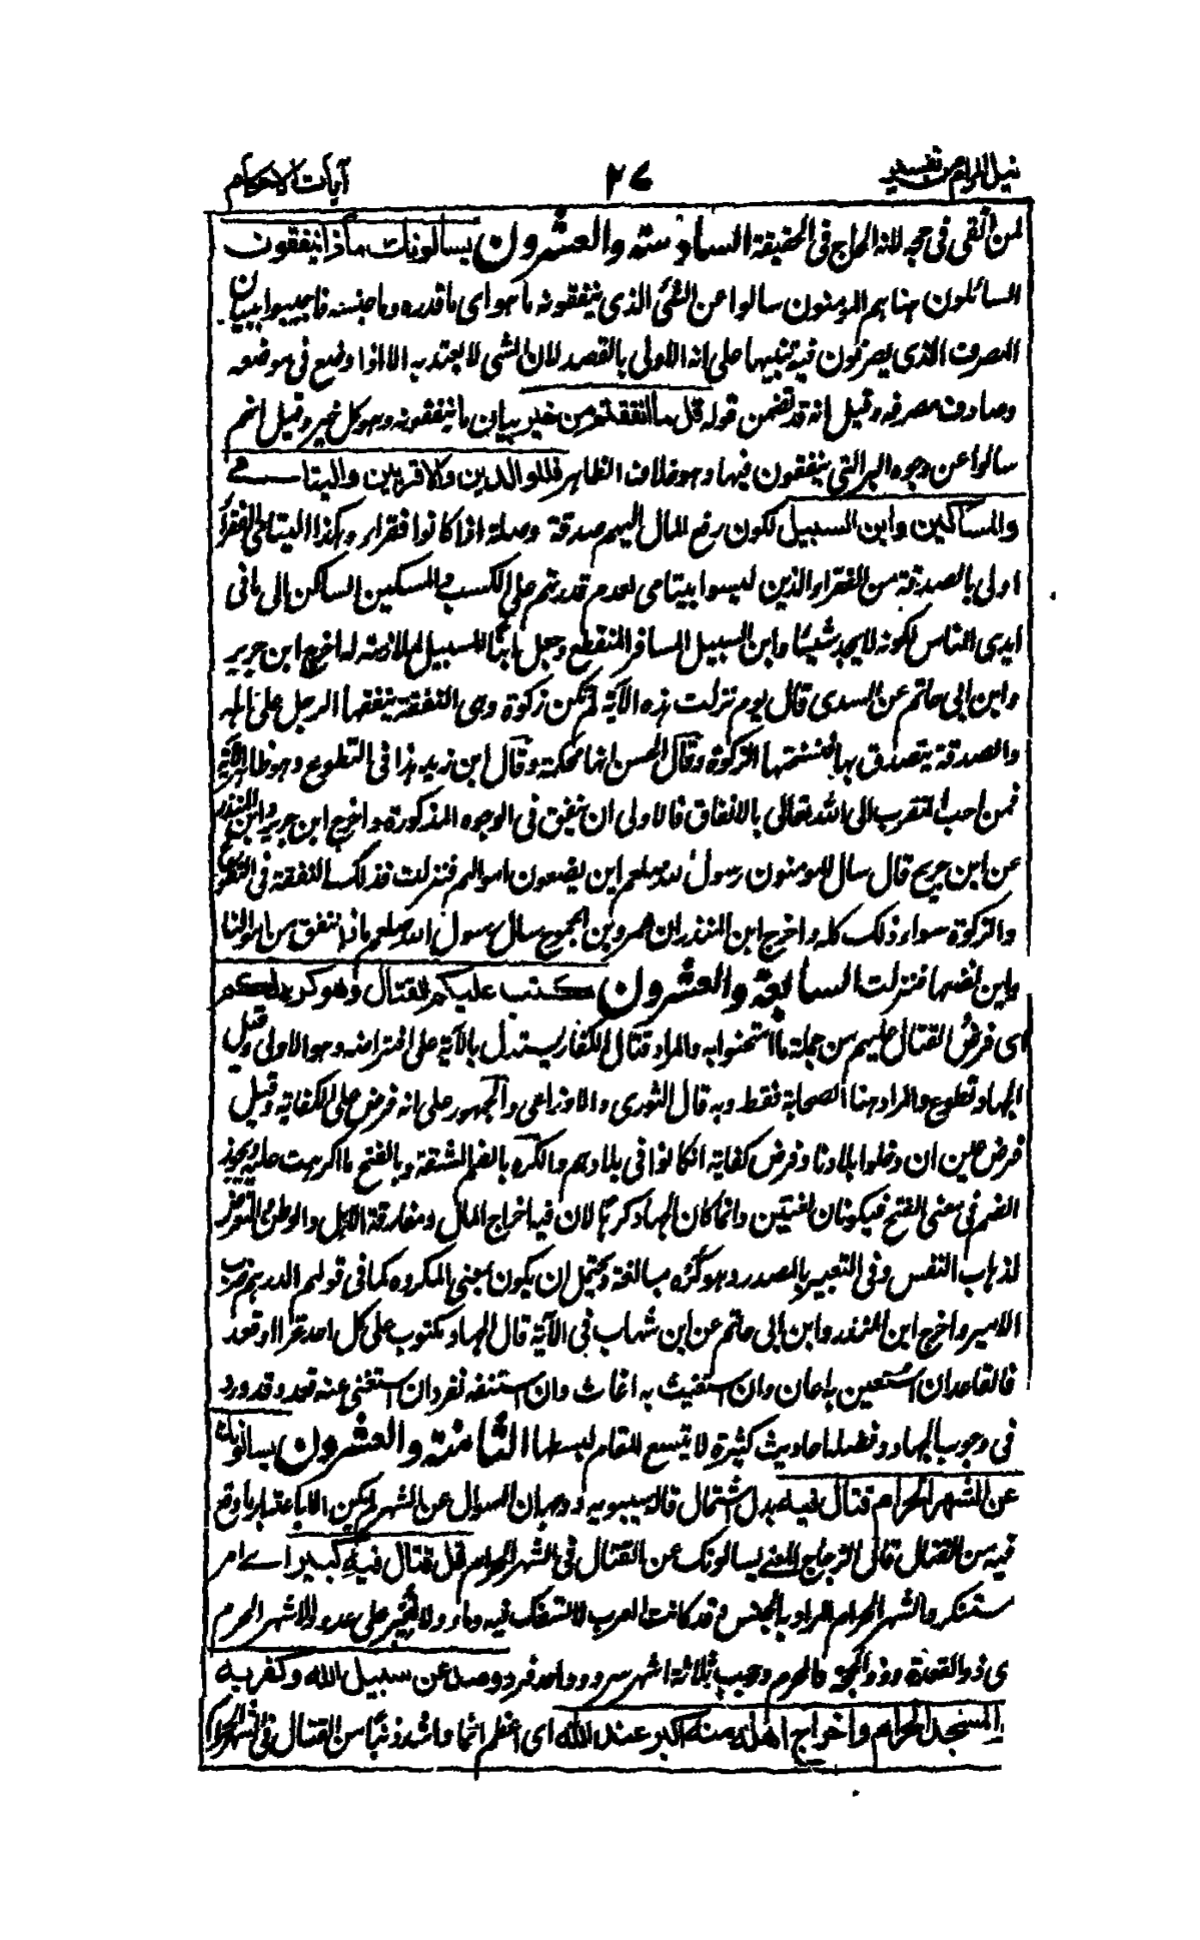 نيل المرام من تفسير ٢٧ آيات الاحكام
لمن اتقى فى حجه لانه الحاج فى الحقيقة السادسته والعشرون يسالونك ماذا ينفقون
السائلون هنا هم المومنون سالوا عن الشئ الذى ينفقونه ما هو اى ما قدره وما جنسه فاجيبوا ببيان
المصرف الذى يصرفون فيه تنبيها على انه الاولى بالقصد لان الشى لا يعتد به الا اذا وضع فى موضعه
وصادف مصرفه وقيل انه قد تضمن قوله قل ما انفقتم من خير بيان ما ينفقونه وهو كل خير وقيل انهم
سالوا عن وجوه البر التى ينفقون فيها وهو خلاف الظاهر فللوالدين والاقربين واليتامے
والمساكين وابن السبيل لكون رفع المال اليهم صدقة وصلة اذا كانوا فقراء وهكذا اليتامى الفقراء
اولى بالصدقة من الفقراء الذين ليسوا بيتامى لعدم قدرتهم على الكسب والمسكين الساكن الى ما فى
ايدى الناس لكونه لا يجد شيئا وابن السبيل المسافر المنقطع وجعل ابنًا للسبيل لملازمته له اخرج ابن جرير
وابن ابى حاتم عن السدى قال يوم نزلت هذه الآية لم تكن زكوة وهى النفقة ينفقها الرجل على اهله
والصدقة يتصدق بها فنسختها الزكوة وقال الحسن انها محكمة وقال ابن زيد هذا فى التطوع وهو ظاهر الآية
فمن احب التقرب الى الله تعالى بالانفاق فالاولى ان ينفق فى الوجوه المذكورة واخرج ابن جرير وابن المنذر
عن ابن جريج قال سال المومنون رسول الله صلعم اين يضعون اموالهم فنزلت فذلك النفقة فى التطوع
والزكوة سواء ذلك كله واخرج ابن المنذر ان عمرو بن الجموح سال رسول الله صلعم ماذا ننفق من اموالنا
واين نضعها فنزلت السابعة والعشرون كتب عليكم القتال وهو كره لكم
اى فرض القتال عليهم من جملة ما امتحنوا به والمراد قتال الكفار يستدل بالآية على افتراضه وهو الاولى وقيل
الجهاد تطوع والمراد هنا الصحابة فقط وبه قال الثورى والاوزاعى والجمهور على انه فرض على الكفاية وقيل
فرض عين ان دخلوا بلادنا وفرض كفاية ان كانوا فى بلادهم والكره بالضم المشقة وبالفتح ما اكرهت عليه ويجوز
الضم فى معنى الفتح فيكونان لغتين وانما كان الجهاد كرهًا لان فيه اخراج المال ومفارقة الاهل والوطن والتعرض
لذهاب النفس وفى التعبير بالمصدر وهو كُرْه مبالغة ويحتمل ان يكون بمعنى المكروه كما فى قولهم الدرهم ضرب
الامير واخرج ابن المنذر وابن ابى حاتم عن ابن شهاب فى الآية قال الجهاد مكتوب على كل احد غزا او قعد
فالقاعد ان استعين به اعان وان استغيث به اغاث وان استنفر نفر وان استغنى عنه قعد وقد ورد
فى وجوب الجهاد وفضله احاديث كثيرة لا يتسع المقام لبسطها الثامنة والعشرون يسالونك
عن الشهر الحرام قتال فيه بدل اشتمال قاله سيبويه ووجه ان السوال عن الشهر لم يكن الا باعتبار ما وقع
فيه من القتال قال الزجاج المعنے يسالونك عن القتال فى الشهر الحرام قل قتال فيه كبير اے امر
مستنكر والشهر الحرام المراد به الجنس وقد كانت العرب لا تسفك فيه دما ولا تغير على عدو والاشهر الحرم
هى ذو القعدة وذو الحجة والمحرم ورجب ثلاثة اشهر سرد وواحد فرد وصد عن سبيل الله وكفر به
والمسجد الحرام واخراج اهله منه اكبر عند الله اى اعظم اثما واشد ذنبًا من القتال فى الشهر الحرام